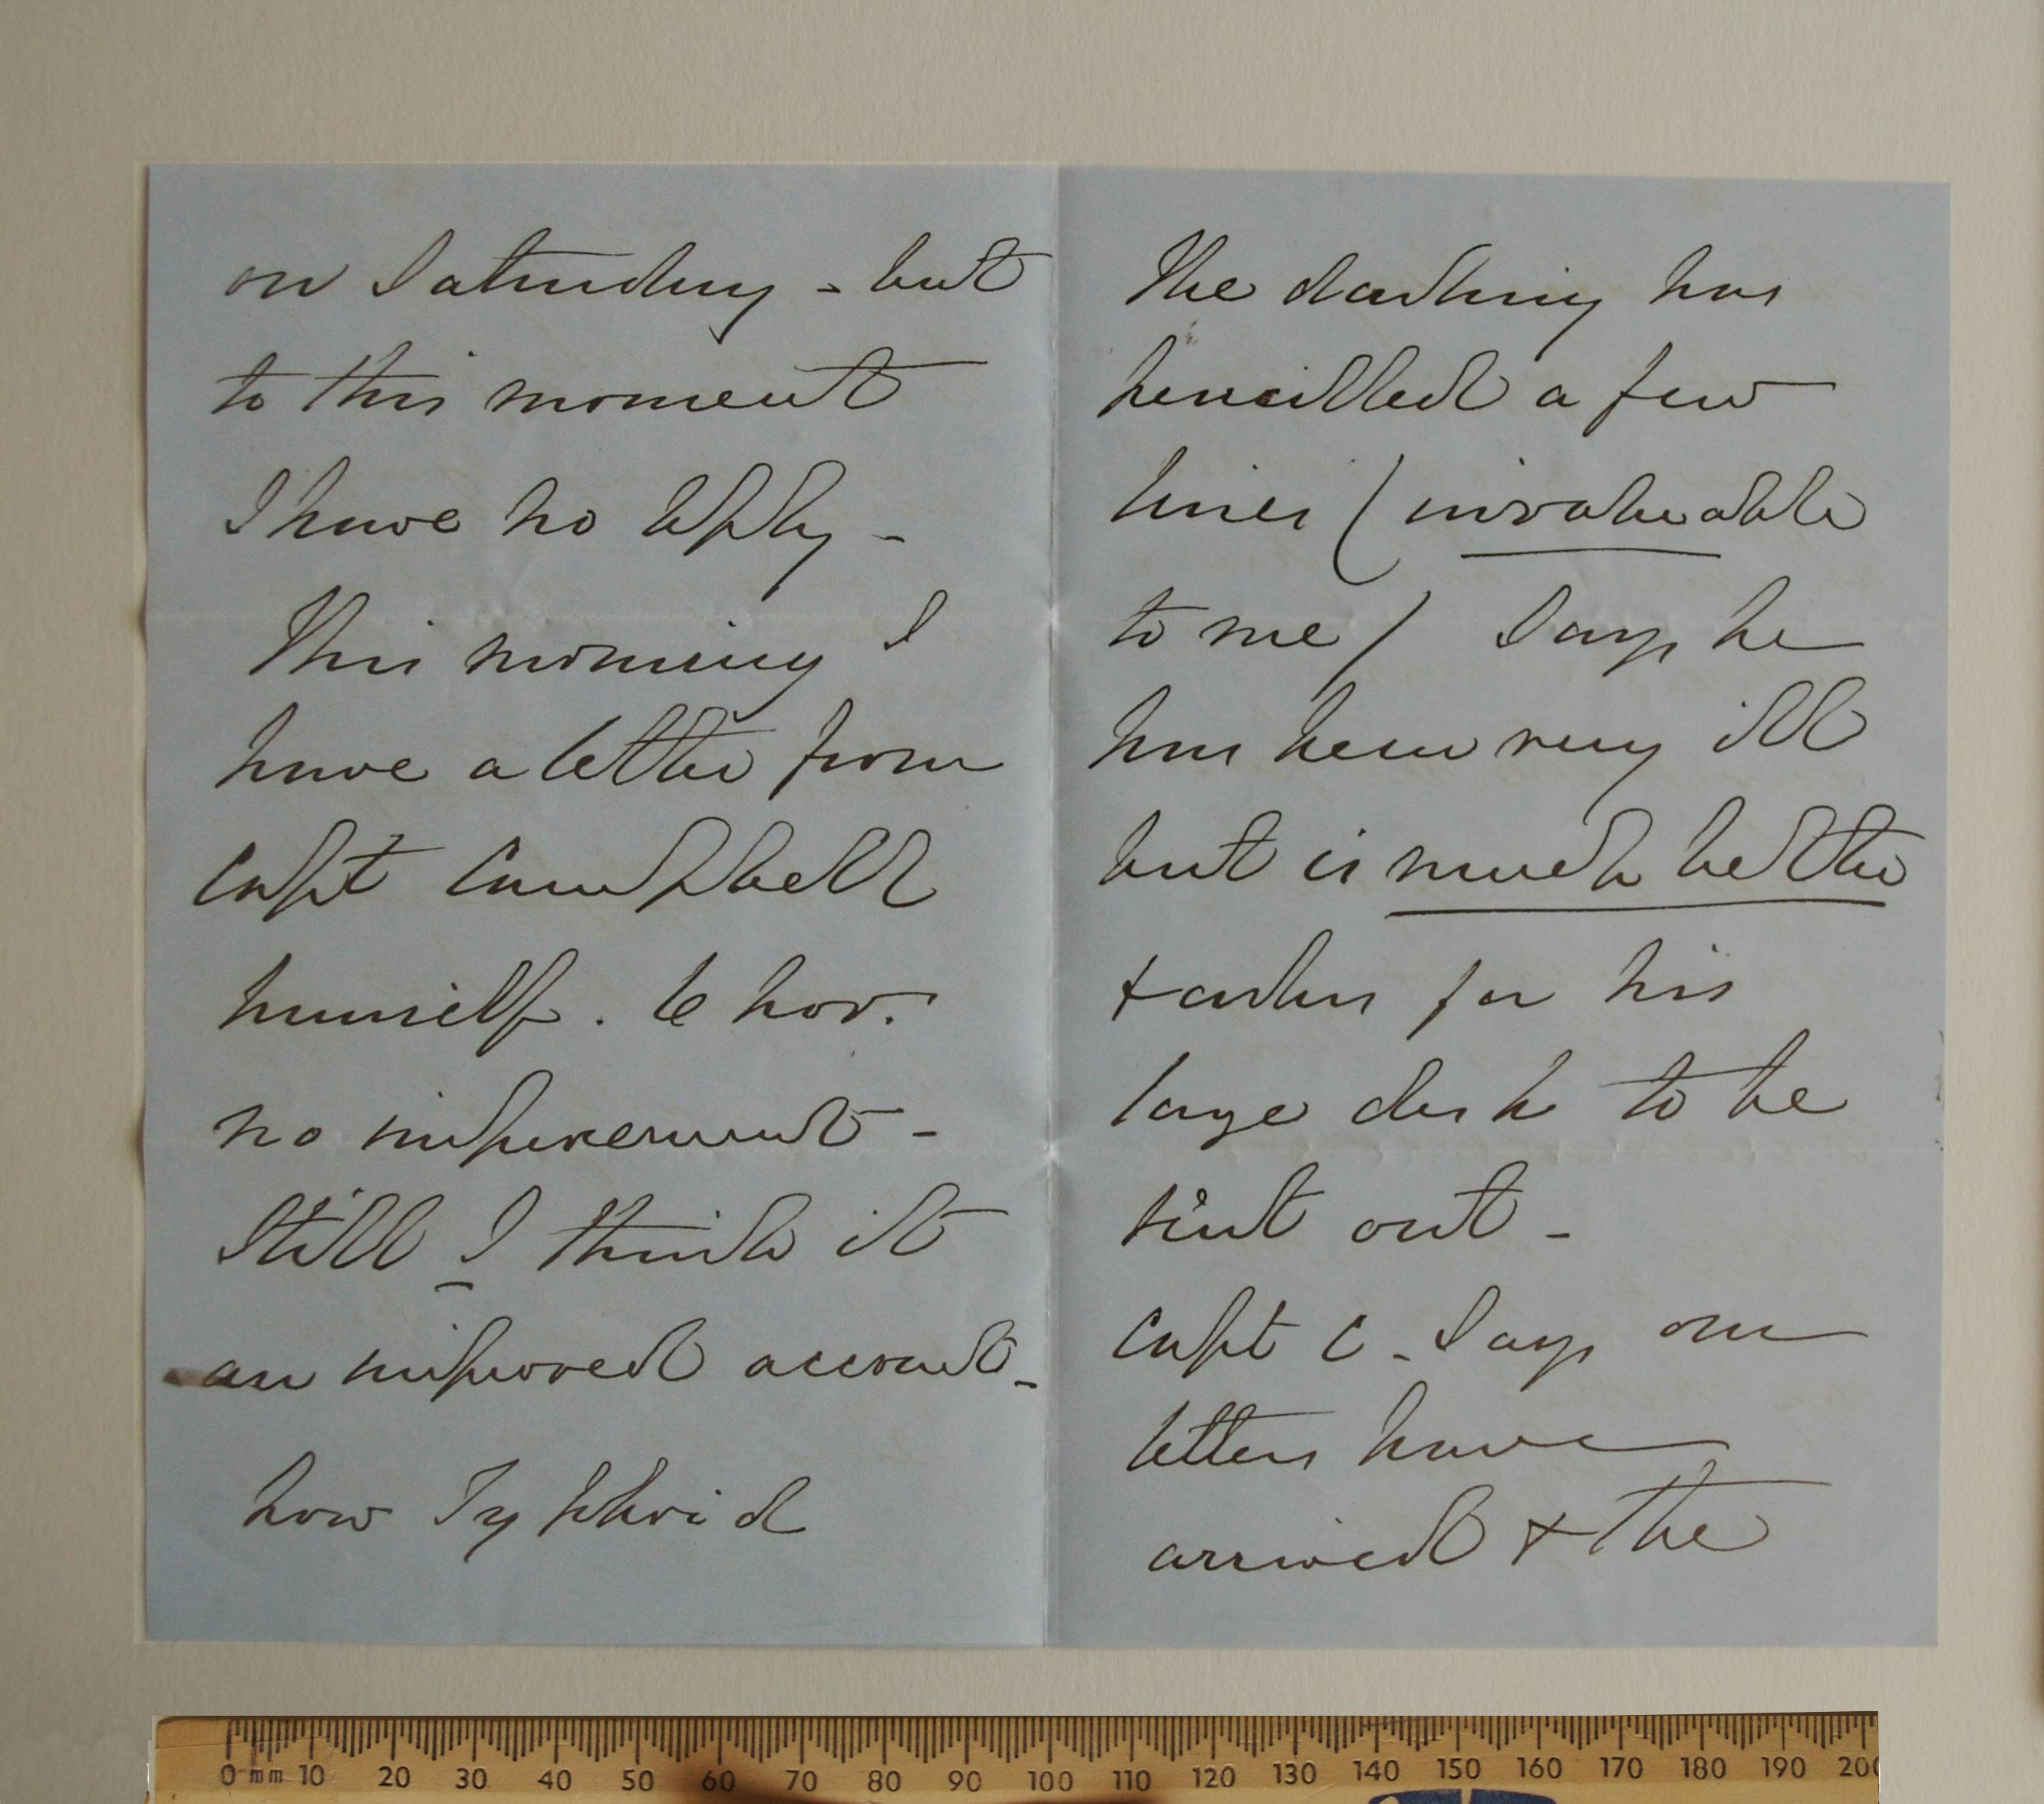 on Saturday - but
to this moment
I have no reply -
This morning I
have a letter from
Capt Campbell
himself. 6 Nov.
no improvement -
Still I think it
an improved account -
how Typhoid
The darling has
pencilled a few
lines (invalueable
to me) Says he
has been very ill
but is much better
& asks for his
large desk to be
sent out -
Capt C - Says our
letters have
arrived & the
0 mm 10 20 30 40 50 60 70 80 90 100 110 120 130 140 150 160 170 180 190 200